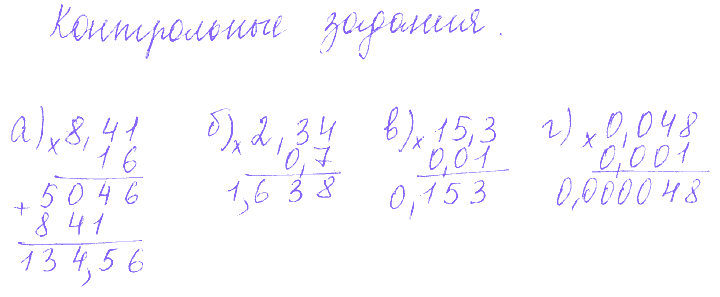 Контрольные задания.
а) × 8,41 б) × 2,34 в) × 15,3 г) × 0,048
16 0,7 0,01 0,001
+ 5046 1,638 0,153 0,000048
841
134,56